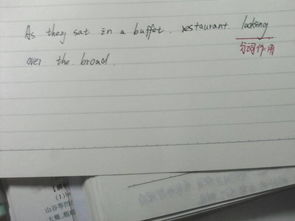 As they sat in a buffet. restaurant looking
分词作用
over the broad.